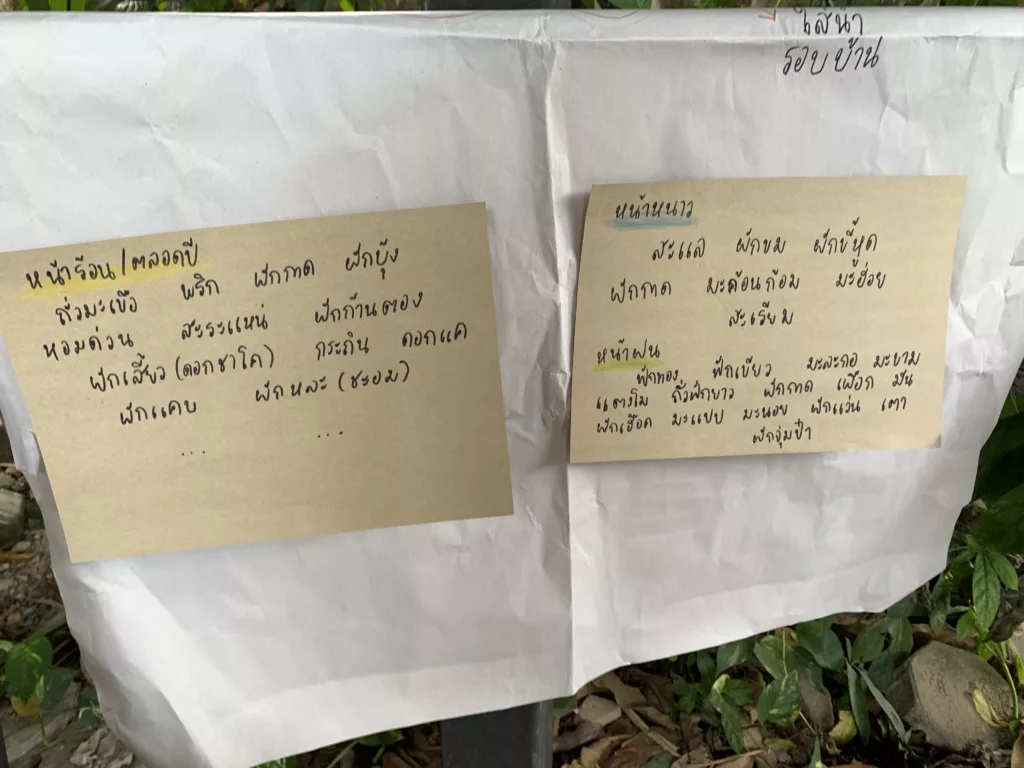 ใส่น้ำ
รอบบ้าน
หน้าร้อน/ตลอดปี
ถั่วมะเขือ พริก ผักกาด ผักบุ้ง
หอมด่วน สะระแหน่ ผักก้านตอง
ผักเสี้ยว (ดอกชาโค) กระถิน ดอกแค
ผักแคบ ผักหละ (ชะอม)
... ...
หน้าหนาว
สะแล ผักขม ผักขี้หูด
ผักกาด มะค้อนก้อม มะฮ่อย
สะเรียม
หน้าฝน
ฟักทอง ฟักเขียว มะละกอ มะขาม
แตงโม ถั่วฝักยาว ผักกาด เผือก มัน
ผักเฮือด มะแปบ มะนอย ผักแว่น เตา
ผักจุ่มป๋า